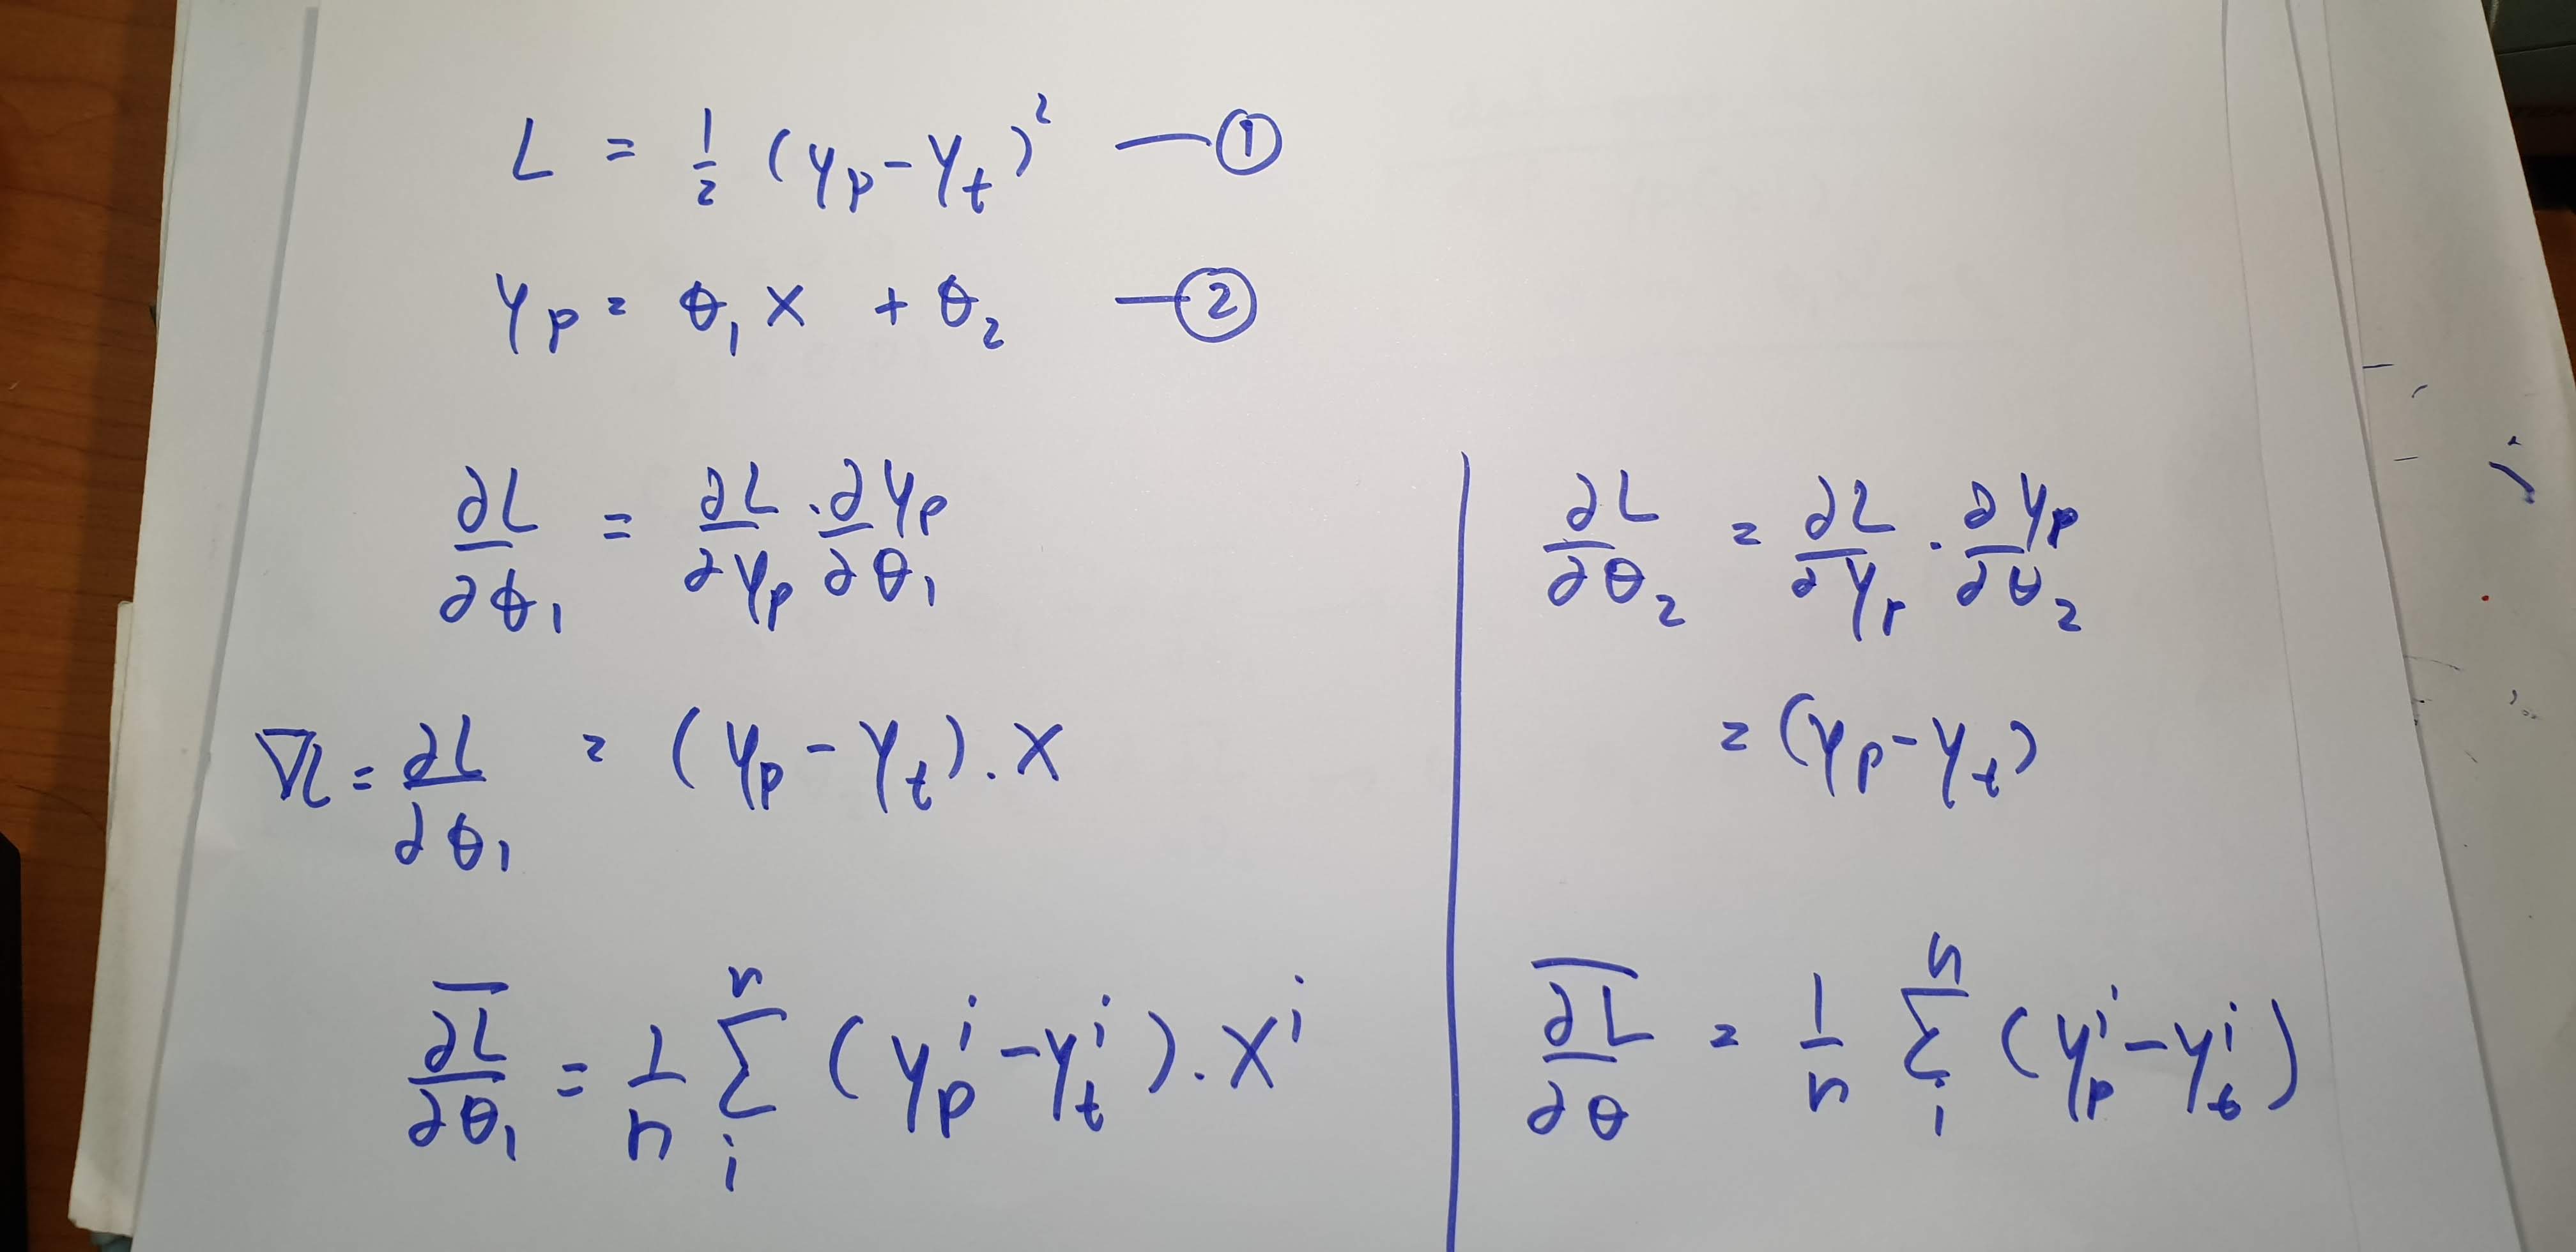 L = 1/2 (y_p - y_t)^2 — ①
y_p = θ_1 x + θ_2 — ②
∂L/∂θ_1 = ∂L/∂y_p · ∂y_p/∂θ_1
∇L = ∂L/∂θ_1 = (y_p - y_t) . x
\overline{∂L/∂θ_1} = 1/n Σ_i^n (y_p^i - y_t^i) . x^i
∂L/∂θ_2 = ∂L/∂y_p · ∂y_p/∂θ_2
= (y_p - y_t)
\overline{∂L/∂θ} = 1/n Σ_i^n (y_p^i - y_t^i)